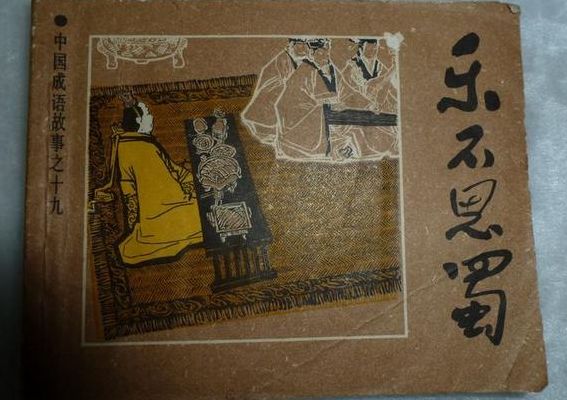 ●中国成语故事之十九
乐不思蜀